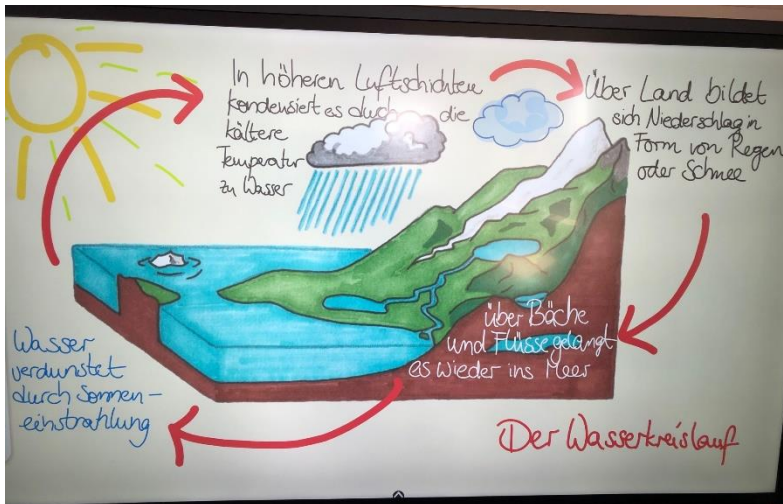 In höheren Luftschichten
kondensiert es durch die
kältere
Temperatur
zu Wasser
Über Land bildet
sich Niederschlag in
Form von Regen
oder Schnee
über Bäche
und Flüsse gelangt
es wieder ins Meer
Wasser
verdunstet
durch Sonnen-
einstrahlung
Der Wasserkreislauf